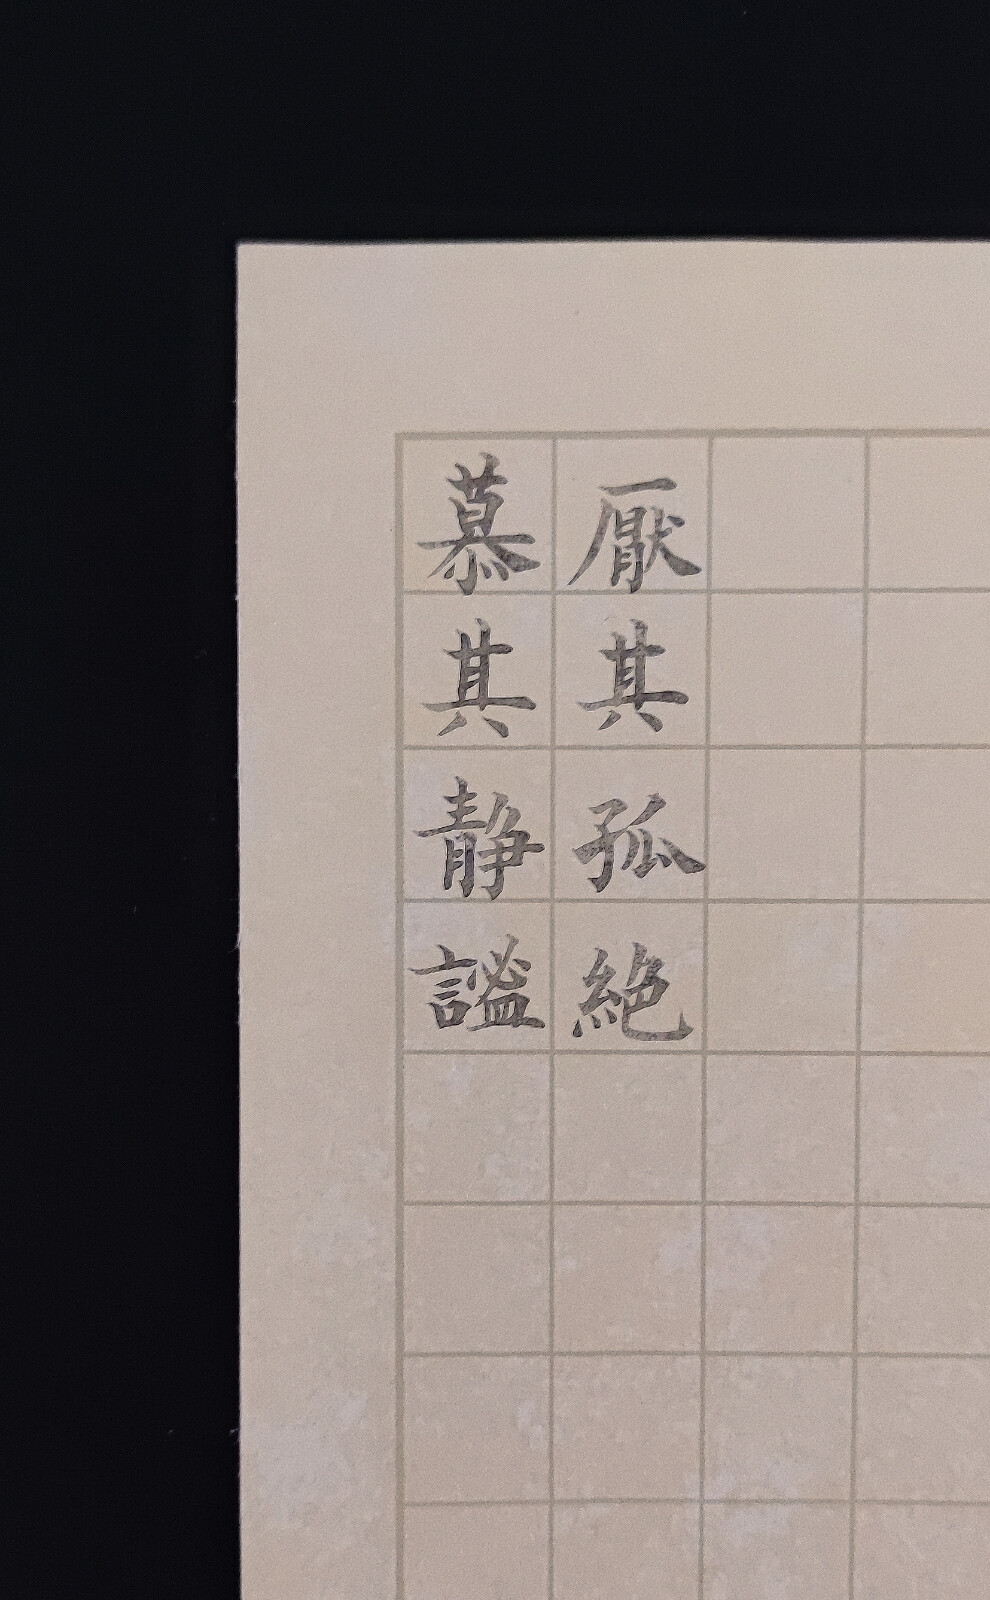 厭其孤絶
慕其静謐